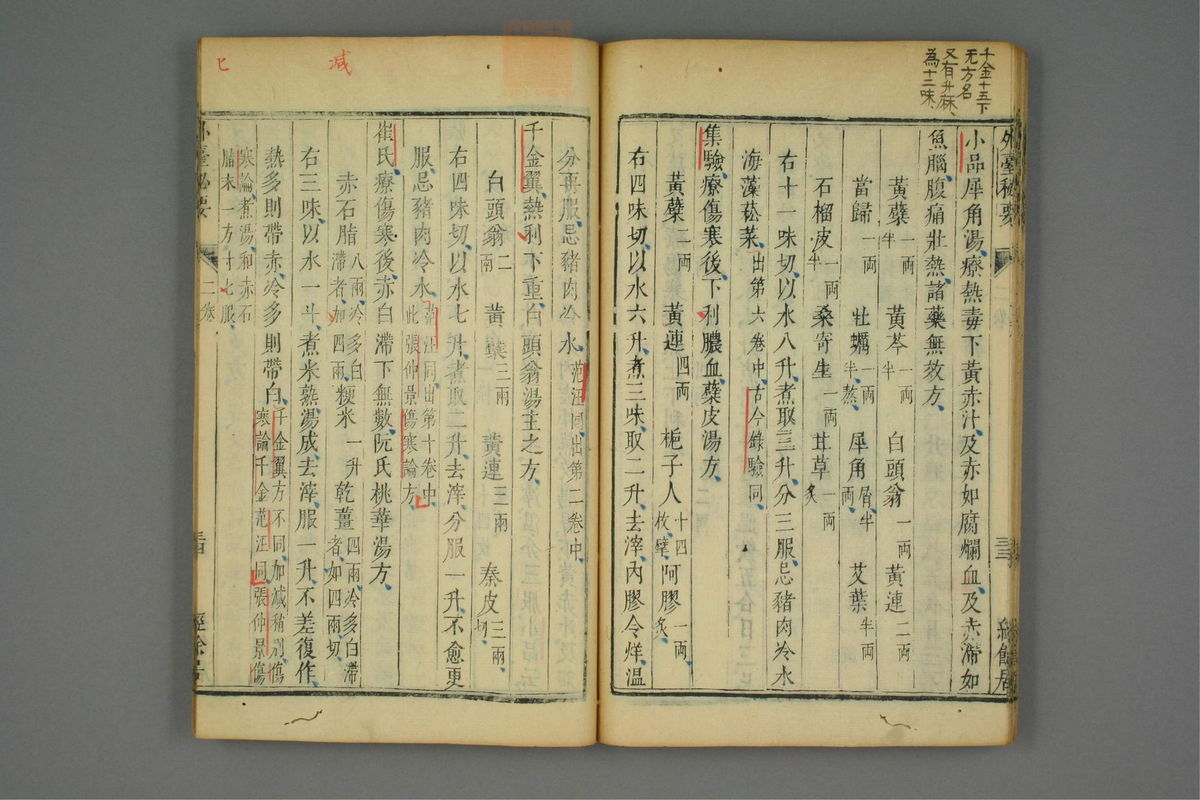 千金十五下
无方名
又有升麻
為十二味
外臺秘要
小品犀角湯療熱毒下黃赤汁及赤如腐爛血及赤滯如
魚腦腹痛壯熱諸藥無效方
黃蘗一兩半 黃芩一兩半 白頭翁一兩 黃連二兩
當歸一兩 牡蠣一兩半熬 犀角屑半兩 艾葉半兩
石榴皮一兩半 桑寄生一兩 甘草一兩炙
右十一味切以水八升煮取三升分三服忌豬肉冷水
海藻菘菜出第六卷中古今錄驗同
集驗療傷寒後下利膿血蘗皮湯方
黃蘗二兩 黃連四兩 梔子人十四枚擘 阿膠一兩炙
右四味切以水六升煮三味取二升去滓內膠令烊溫
分再服忌豬肉冷水范汪同出第二卷中
千金翼熱利下重白頭翁湯主之方
白頭翁二兩 黃蘗三兩 黃連三兩 秦皮三兩切
右四味切以水七升煮取二升去滓分服一升不愈更
服忌豬肉冷水范汪同出第十卷中此張仲景傷寒論方
崔氏療傷寒後赤白滯下無數阮氏桃華湯方
赤石脂八兩冷多白滯者加四兩 粳米一升 乾薑四兩冷多白滯者如四兩切
右三味以水一斗煮米熟湯成去滓服一升不差復作
熱多則帶赤冷多則帶白千金翼方不同加減稍別傷寒論千金范汪同張仲景傷
寒論煮湯和赤石脂末一方寸匕服
外臺秘要
二卷
經餘居
減
匕